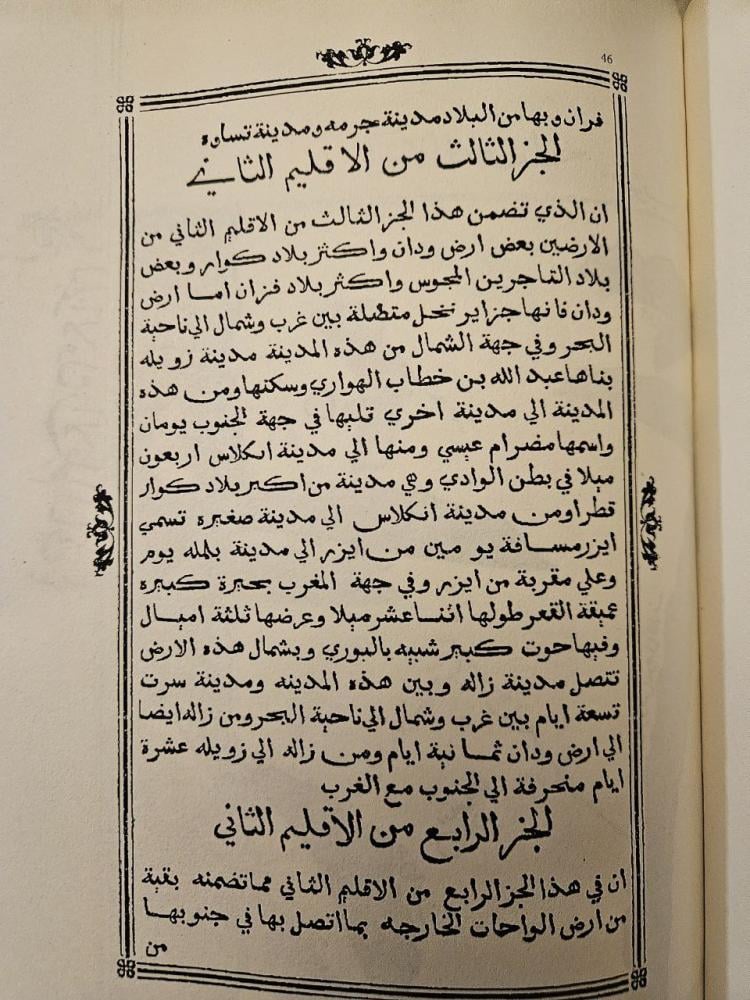 46
فران وبها من البلاد مدينة جرمه ومدينة تساوه
الجز الثالث من الاقليم الثاني
ان الذي تضمن هذا الجز الثالث من الاقليم الثاني من
الارضين بعض ارض ودان واكثر بلاد كوار وبعض
بلاد التاجرين المجوس واكثر بلاد فزان اما ارض
ودان فانها جزاير نخل متصلة بين غرب وشمال الي ناحية
البحر وفي جهة الشمال من هذه المدينة مدينة زويله
بناها عبد الله بن خطاب الهواري وسكنها ومن هذه
المدينة الي مدينة اخري تليها في جهة الجنوب يومان
واسمها مضرام عيسي ومنها الي مدينة انكلاس اربعون
ميلا في بطن الوادي وهي مدينة من اكبر بلاد كوار
قطرا ومن مدينة انكلاس الي مدينة صغيره تسمي
ايزر مسافة يو مين من ايزر الي مدينة بلمله يوم
وعلي مقربة من ايزر وفي جهة المغرب بحيرة كبيره
عميقة القعر طولها اثنا عشر ميلا وعرضها ثلثة اميال
وفيها حوت كبير شبيه بالبوري وبشمال هذه الارض
تتصل مدينة زاله وبين هذه المدينه ومدينة سرت
تسعة ايام بين غرب وشمال الي ناحية البحر ومن زاله ايضا
الي ارض ودان ثمانية ايام ومن زاله الي زويله عشرة
ايام منحرفة الي الجنوب مع الغرب
الجز الرابع من الاقليم الثاني
ان في هذا الجز الرابع من الاقليم الثاني مما تضمنه بقية
من ارض الواحات الخارجه بما اتصل بها في جنوبها
من